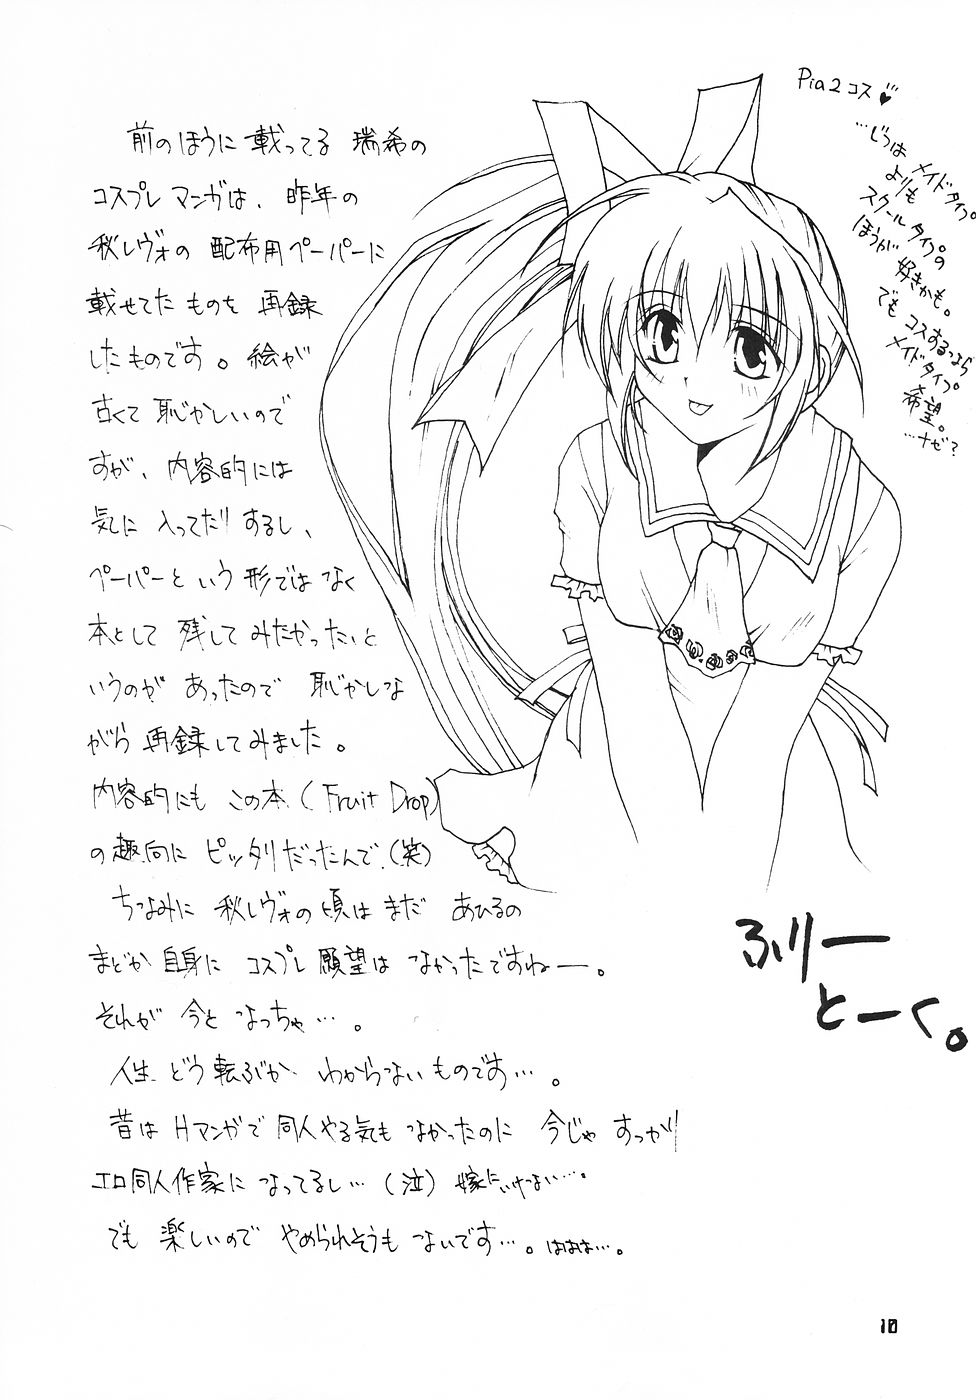 前のほうに載ってる 瑞希の
コスプレマンガは、昨年の
秋レヴォの 配布用ペーパーに
載せてたものを 再録
したものです。絵が
古くて 恥かしいので
すが、内容的には
気に入ってたりするし、
ペーパーという形ではなく
本として 残してみたかったと
いうのが あったので 恥かしな
がら 再録してみました。
内容的にも この本(Fruit Drop)
の趣向に ピッタリだったんで(笑)
ちなみに 秋レヴォの頃はまだ あひるの
まどか自身に コスプレ願望は なかったですねー。
それが 今となっちゃ…。
人生 どう転ぶか わからないものです…。
昔は Hマンガで 同人やる気も なかったのに 今じゃ すっかり
エロ同人作家に なってるし…(泣) 嫁にいけない…。
でも 楽しいので やめられそうも ないです…。ははは…。
Pia2コス♥
…じつは
メイドタイプ。
よりも
スクールタイプの
ほうが 好きかも。
でも コスするなら
メイドタイプ。
希望。
…ナゼ?
ふりー
とーく。
10